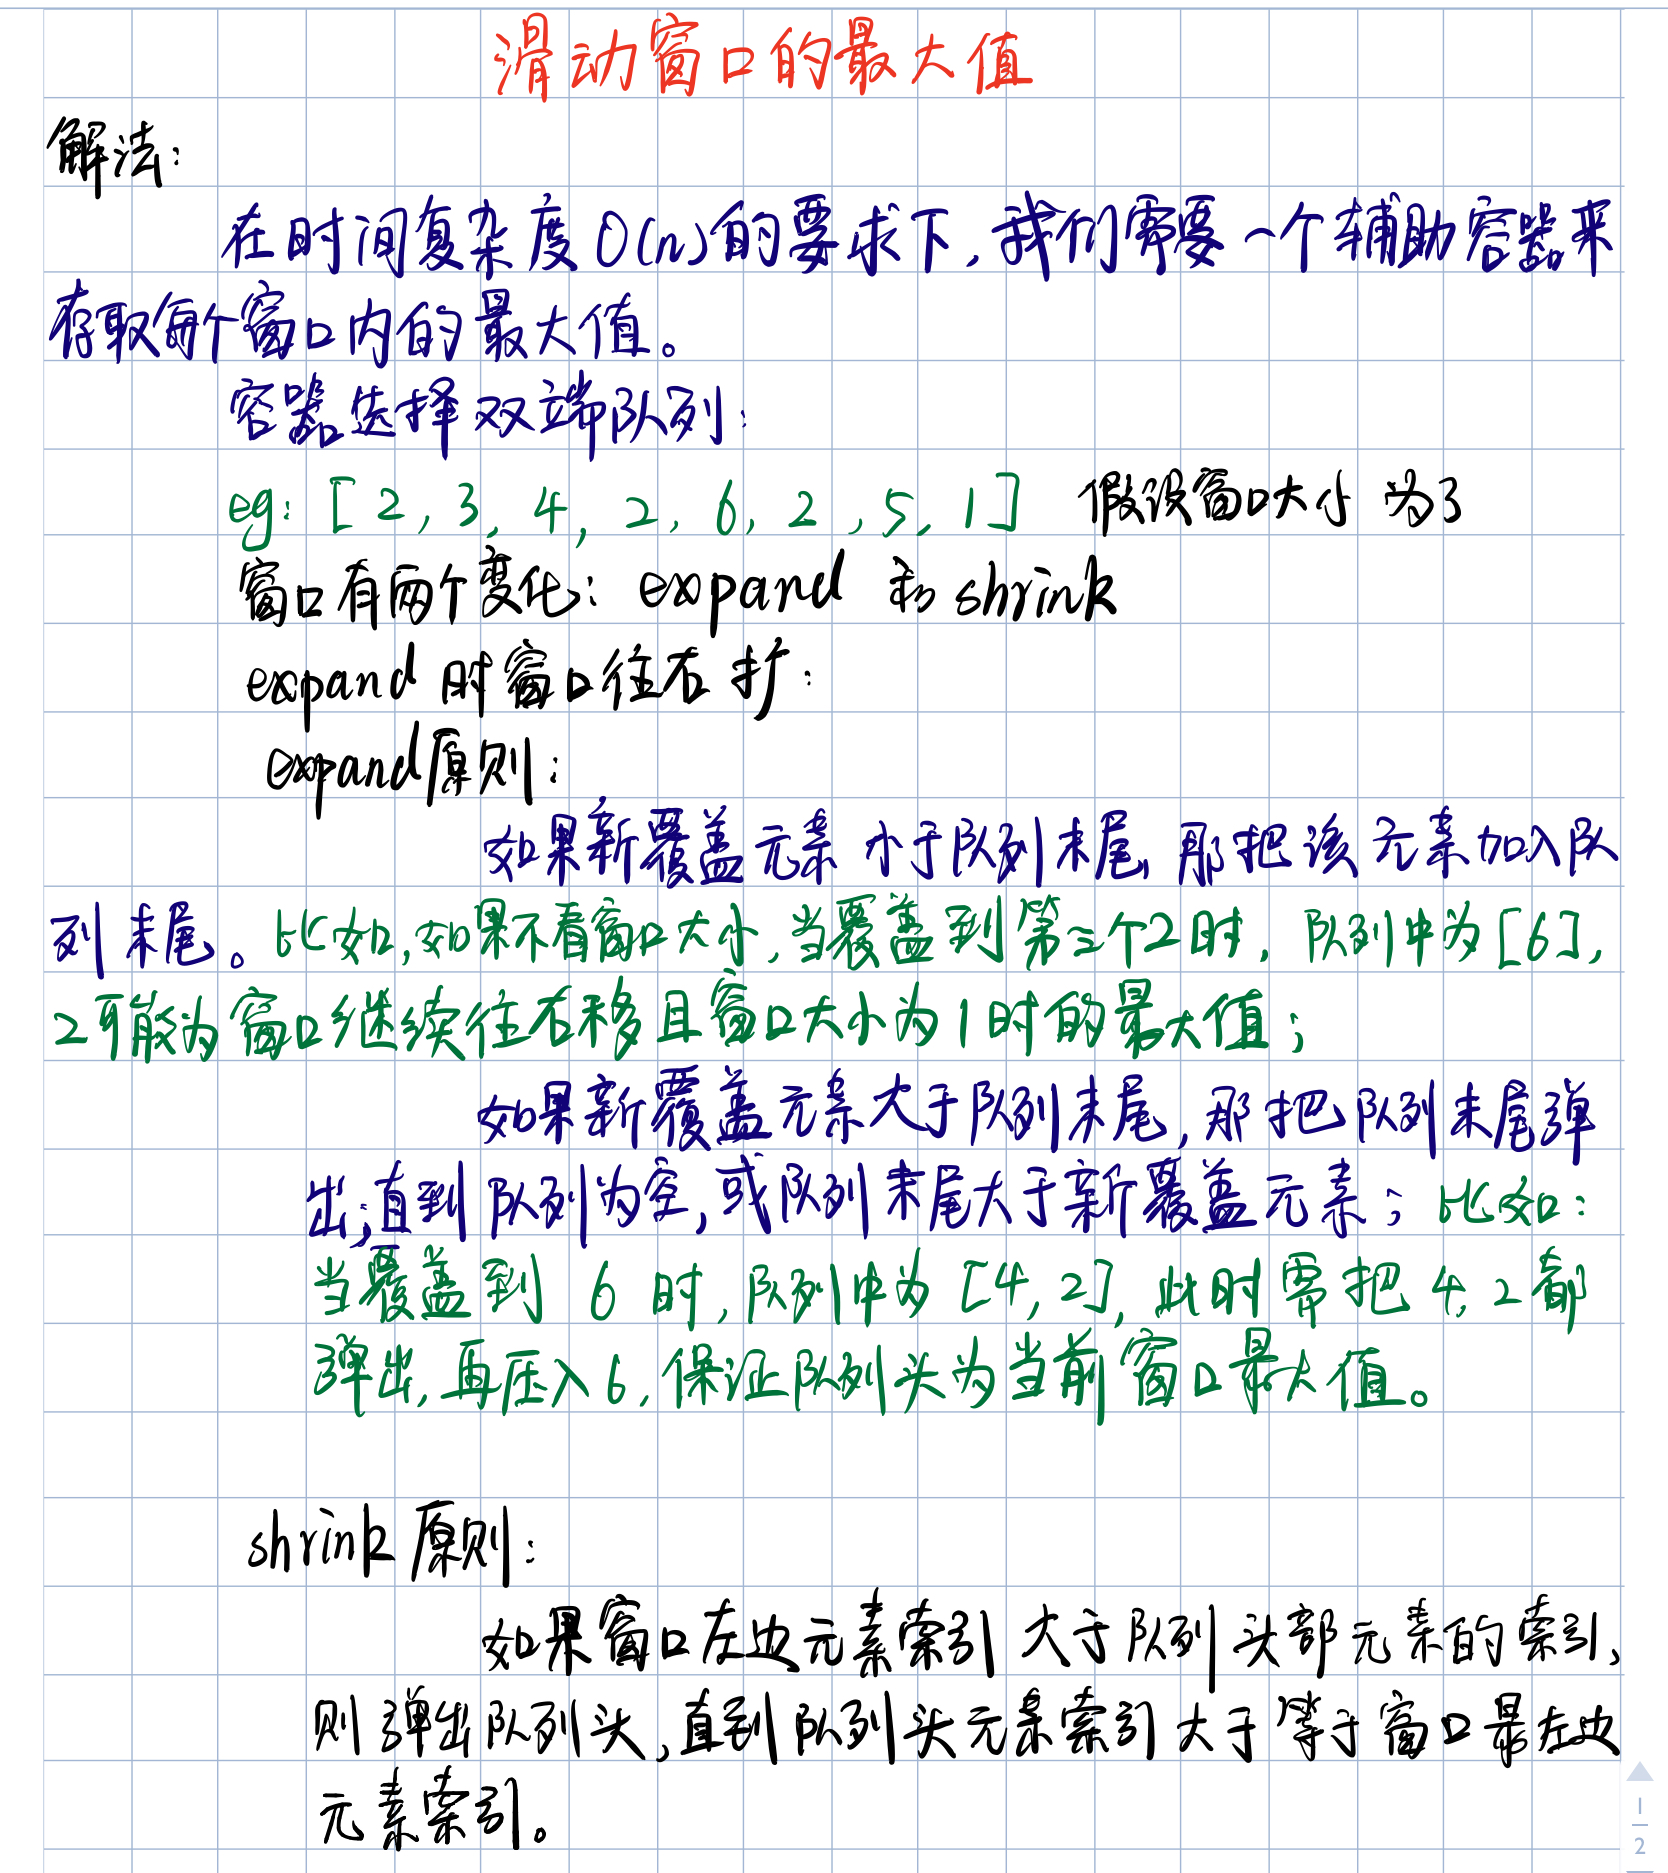 滑动窗口的最大值
解法:
在时间复杂度O(n)的要求下,我们需要一个辅助容器来
存取每个窗口内的最大值。
容器选择双端队列:
eg: [2, 3, 4, 2, 6, 2, 5, 1] 假设窗口大小为3
窗口有两个变化: expand 和 shrink
expand 时窗口往右扩:
expand原则:
如果新覆盖元素小于队列末尾,那把该元素加入队
列末尾。比如,如果不看窗口大小,当覆盖到第三个2时,队列中为[6],
2可能为窗口继续往右移且窗口大小为1时的最大值;
如果新覆盖元素大于队列末尾,那把队列末尾弹
出,直到队列为空,或队列末尾大于新覆盖元素;比如:
当覆盖到 6 时,队列中为[4,2],此时需把4,2都
弹出,再压入6,保证队列头为当前窗口最大值。
shrink原则:
如果窗口左边元素索引大于队列头部元素的索引,
则弹出队列头,直到队列头元素索引大于等于窗口最左边
元素索引。
1
2